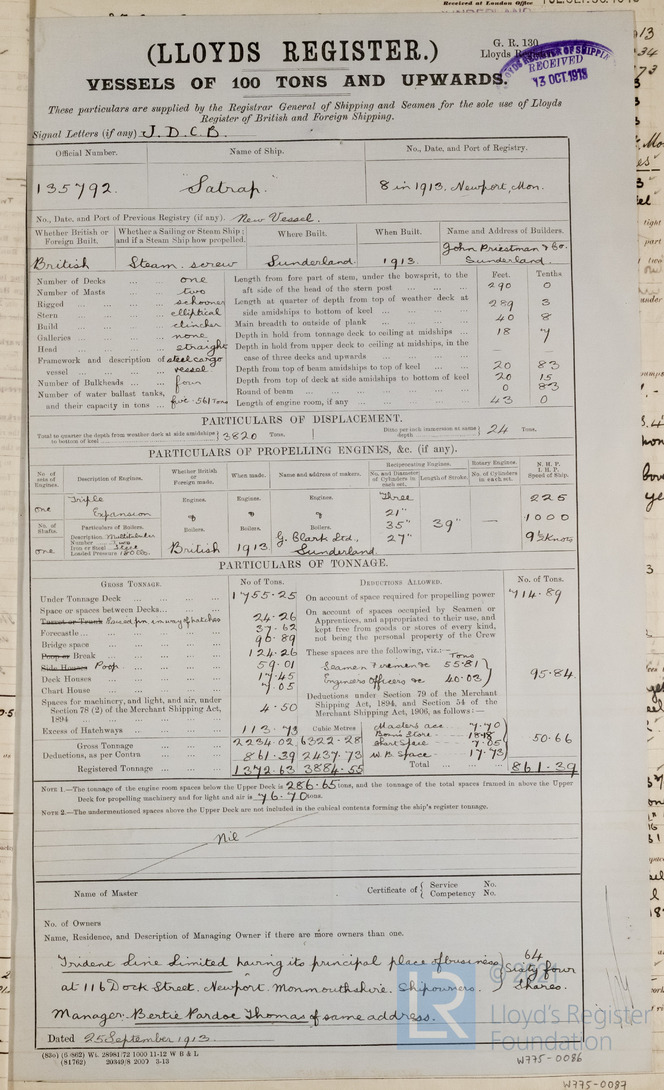 (LLOYDS REGISTER.)
G. R. 130
Lloyds
LLOYDS REGISTER OF SHIPPING
RECEIVED
13 OCT. 1913
VESSELS OF 100 TONS AND UPWARDS.
These particulars are supplied by the Registrar General of Shipping and Seamen for the sole use of Lloyds
Register of British and Foreign Shipping.
Signal Letters (if any) J. D. C. B.
Official Number. Name of Ship. No., Date, and Port of Registry.
135792. "Satrap." 8 in 1913, Newport, Mon.
No., Date, and Port of Previous Registry (if any). New Vessel.
Whether British or Foreign Built. Whether a Sailing or Steam Ship; and if a Steam Ship how propelled. Where Built. When Built. Name and Address of Builders.
British Steam. screw Sunderland 1913. John Priestman & Co. Sunderland.
Feet. Tenths.
Number of Decks ... one
Number of Masts ... two
Rigged ... schooner
Stern ... elliptical
Build ... clincher
Galleries ... none
Head ... straight
Framework and description of vessel ... steel cargo vessel
Number of Bulkheads ... four
Number of water ballast tanks, and their capacity in tons ... five - 561 Tons
Length from fore part of stem, under the bowsprit, to the aft side of the head of the stern post ... 290 0
Length at quarter of depth from top of weather deck at side amidships to bottom of keel ... 289 3
Main breadth to outside of plank ... 40 8
Depth in hold from tonnage deck to ceiling at midships ... 18 7
Depth in hold from upper deck to ceiling at midships, in the case of three decks and upwards ... — —
Depth from top of beam amidships to top of keel ... 20 83
Depth from top of deck at side amidships to bottom of keel 20 15
Round of beam ... 0 83
Length of engine room, if any ... 43 0
PARTICULARS OF DISPLACEMENT.
Total to quarter the depth from weather deck at side amidships to bottom of keel 3820 Tons. Ditto per inch immersion at same depth 24 Tons.
PARTICULARS OF PROPELLING ENGINES, &c. (if any).
No. of sets of Engines. Description of Engines. Whether British or Foreign made. When made. Name and address of makers. Reciprocating Engines. No. and Diameter of Cylinders in each set. Length of Stroke. Rotary Engines. No. of Cylinders in each set. N. H. P. I. H. P. Speed of Ship.
one Triple Expansion Engines. Engines. Engines. Three 21" 35" 27" 39" — 225 1000 9½ Knots
No. of Shafts. Particulars of Boilers. Boilers. Boilers. Boilers.
one Description Multitubular
Number Two
Iron or Steel Steel
Loaded Pressure 180 lbs.
British 1913 G. Clark Ltd., Sunderland.
PARTICULARS OF TONNAGE.
GROSS TONNAGE. No of Tons. DEDUCTIONS ALLOWED. No. of Tons.
Under Tonnage Deck ... 1755.25
Space or spaces between Decks ...
Turret or Trunk 24.26
Forecastle ... 37.62
Bridge space ... 96.89
Poop or Break ... 124.26
Side Houses Poop ... 59.01
Deck Houses ... 17.45
Chart House ... 7.05
Spaces for machinery, and light, and air, under Section 78 (2) of the Merchant Shipping Act, 1894 ... 4.50
Excess of Hatchways ... 113.73 Cubic Metres
Gross Tonnage ... 2234.02 6322.28
Deductions, as per Contra ... 861.39 2437.73
Registered Tonnage ... 1372.63 3884.55
On account of space required for propelling power 714.89
On account of spaces occupied by Seamen or Apprentices, and appropriated to their use, and kept free from goods or stores of every kind, not being the personal property of the Crew
These spaces are the following, viz:—
Tons
Seamen Firemen &c 55.81
Engineers Officers &c 40.03
95.84.
Deductions under Section 79 of the Merchant Shipping Act, 1894, and Section 54 of the Merchant Shipping Act, 1906, as follows:—
Masters acc 7.70
Bosn's Store 18.18
Chart Space 7.05
W.B. Space 17.73
50.66
Total ... 861.39
NOTE 1.—The tonnage of the engine room spaces below the Upper Deck is 286.65 tons, and the tonnage of the total spaces framed in above the Upper
Deck for propelling machinery and for light and air is 76.70 tons.
NOTE 2.—The undermentioned spaces above the Upper Deck are not included in the cubical contents forming the ship's register tonnage.
Nil
Name of Master Certificate of { Service No. Competency No.
No. of Owners
Name, Residence, and Description of Managing Owner if there are more owners than one.
Trident Line Limited having its principal place of business 64
at 116 Dock Street. Newport. Monmouthshire. Shipowners. Sixty four Shares.
Manager: Bertie Pardoe Thomas of same address.
Dated 25 September 1913.
(83o) (6 862) Wt. 28981/72 1000 11-12 W B & L
(81762) 20349/8 2000 3-13
LR
© 2021
Lloyd's Register
Foundation
W775-0086
W775-0087